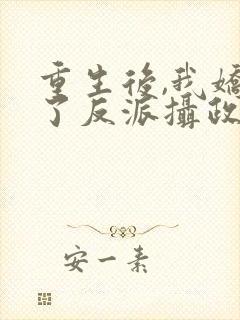 重生後,我嬌
了反派攝政
安一素